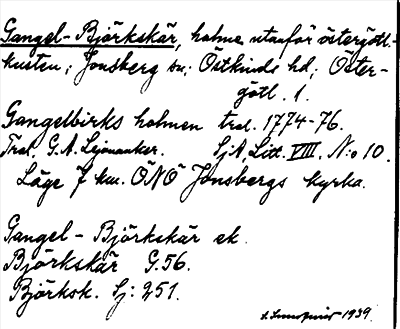 Gangel-Björkskär, holme utanför östergötl.-
kusten; Jonsberg sn; Östkinds hd; Öster-
götl. l.
Gangelbirks holmen trol. 1774-76.
Trol. G. A. Lejonanker. SjA, Litt. VIII. N:o 10.
Läge 7 km. ÖNÖ Jonsbergs kyrka.
Gangel-Björkskär ek.
Björkskär G.56.
Björksk. Gj: 251.
1939.